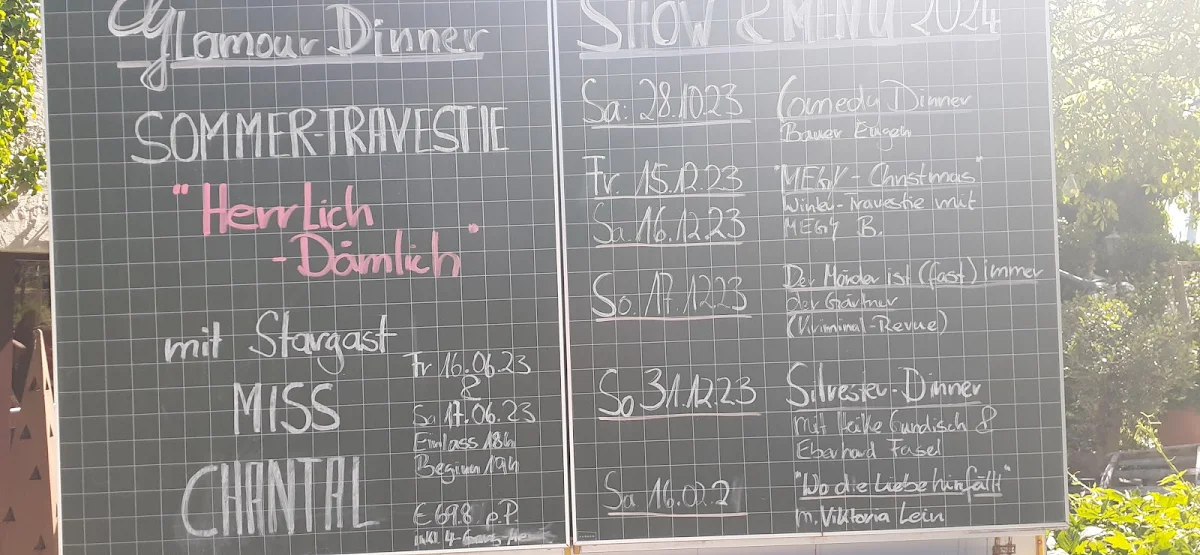 Glamour Dinner
SOMMER-TRAVESTIE
"Herrlich
-Dämlich"
mit Stargast
MISS
CHANTAL
Fr 16.06.23
&
Sa 17.06.23
Einlass 18h
Beginn 19h
€ 69.8 p.P.
inkl. 4-
SHOW & MENÜ 2024
Sa: 28.10.23 Comedy Dinner
Bauer Eugen
Fr. 15.12.23 "MEGY-Christmas"
Sa. 16.12.23 Winter-Travestie mit
MEGY B.
So. 17.12.23 Der Mörder ist (fast) immer
der Gärtner
(Kriminal-Revue)
So 31.12.23 Silvester-Dinner
mit Heike Gundisch &
Eberhard Fasel
Sa 16.02.2 "Wo die Liebe hinfällt"
m. Viktoria Lein